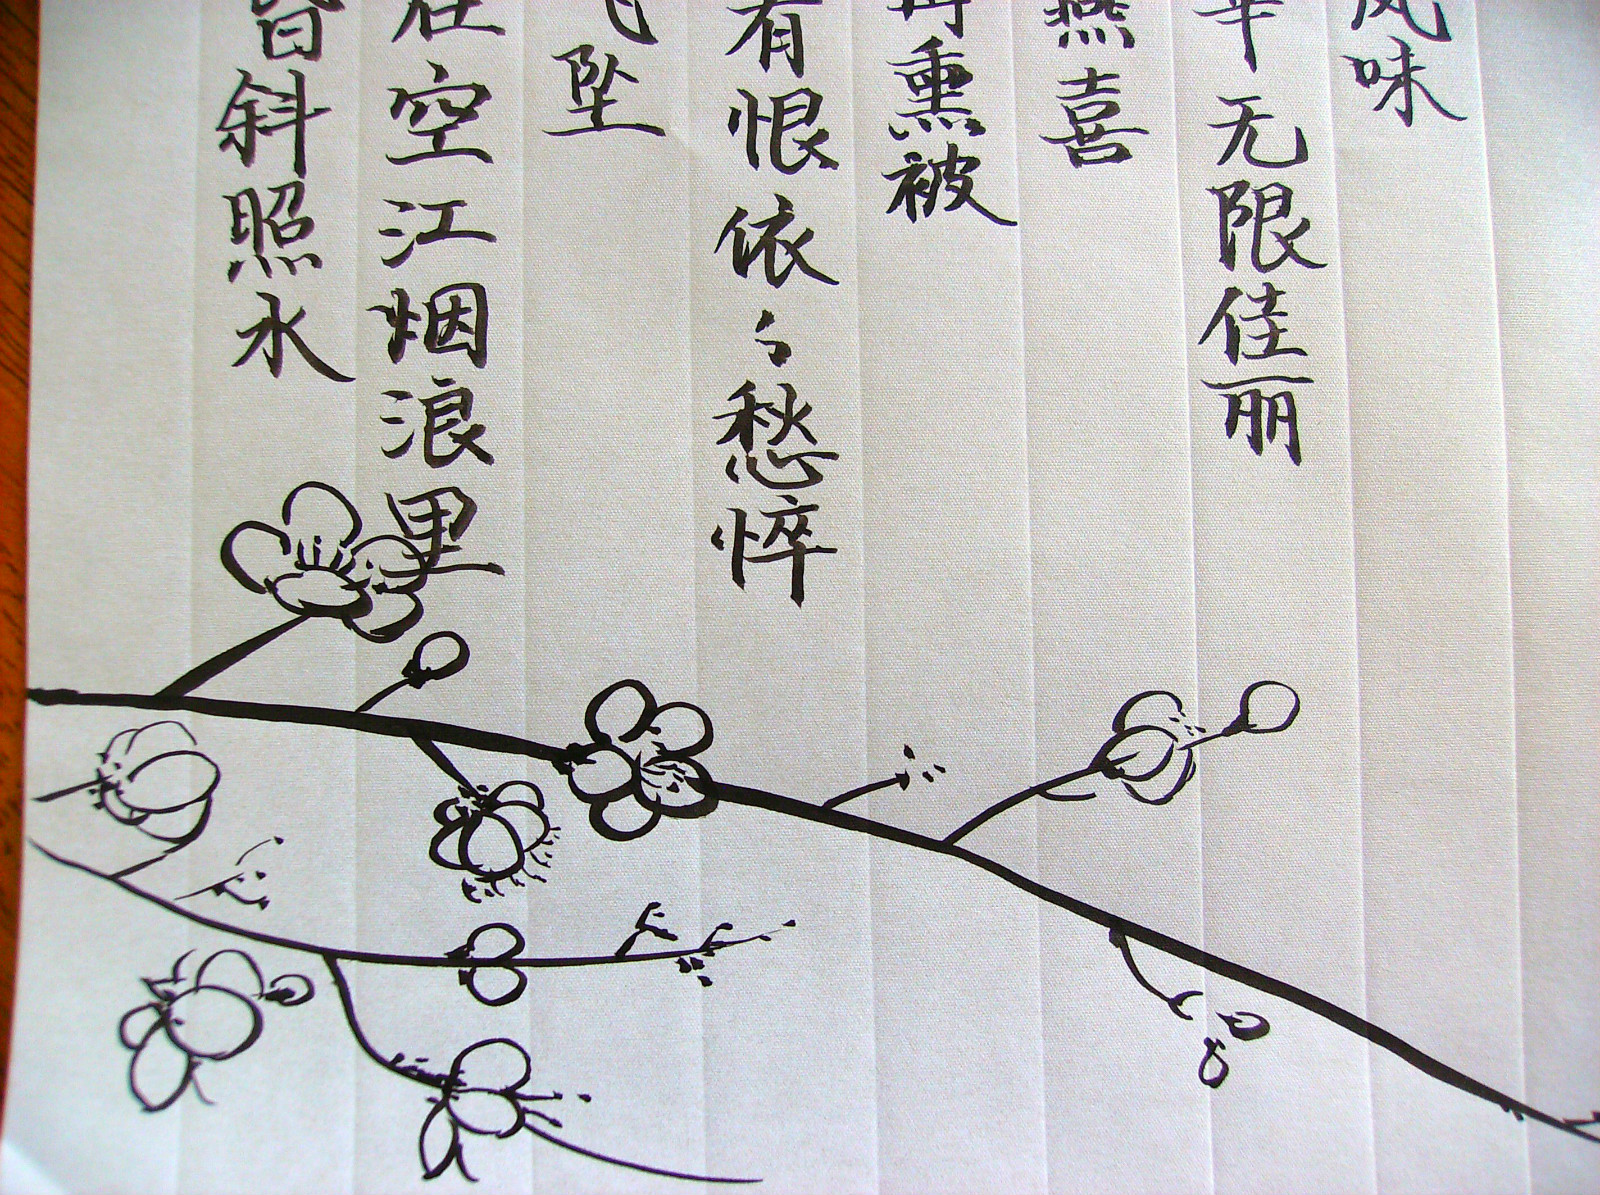 风味
华无限佳丽
燕喜
熏被
有恨依々愁悴
坠
在空江烟浪里
昏斜照水